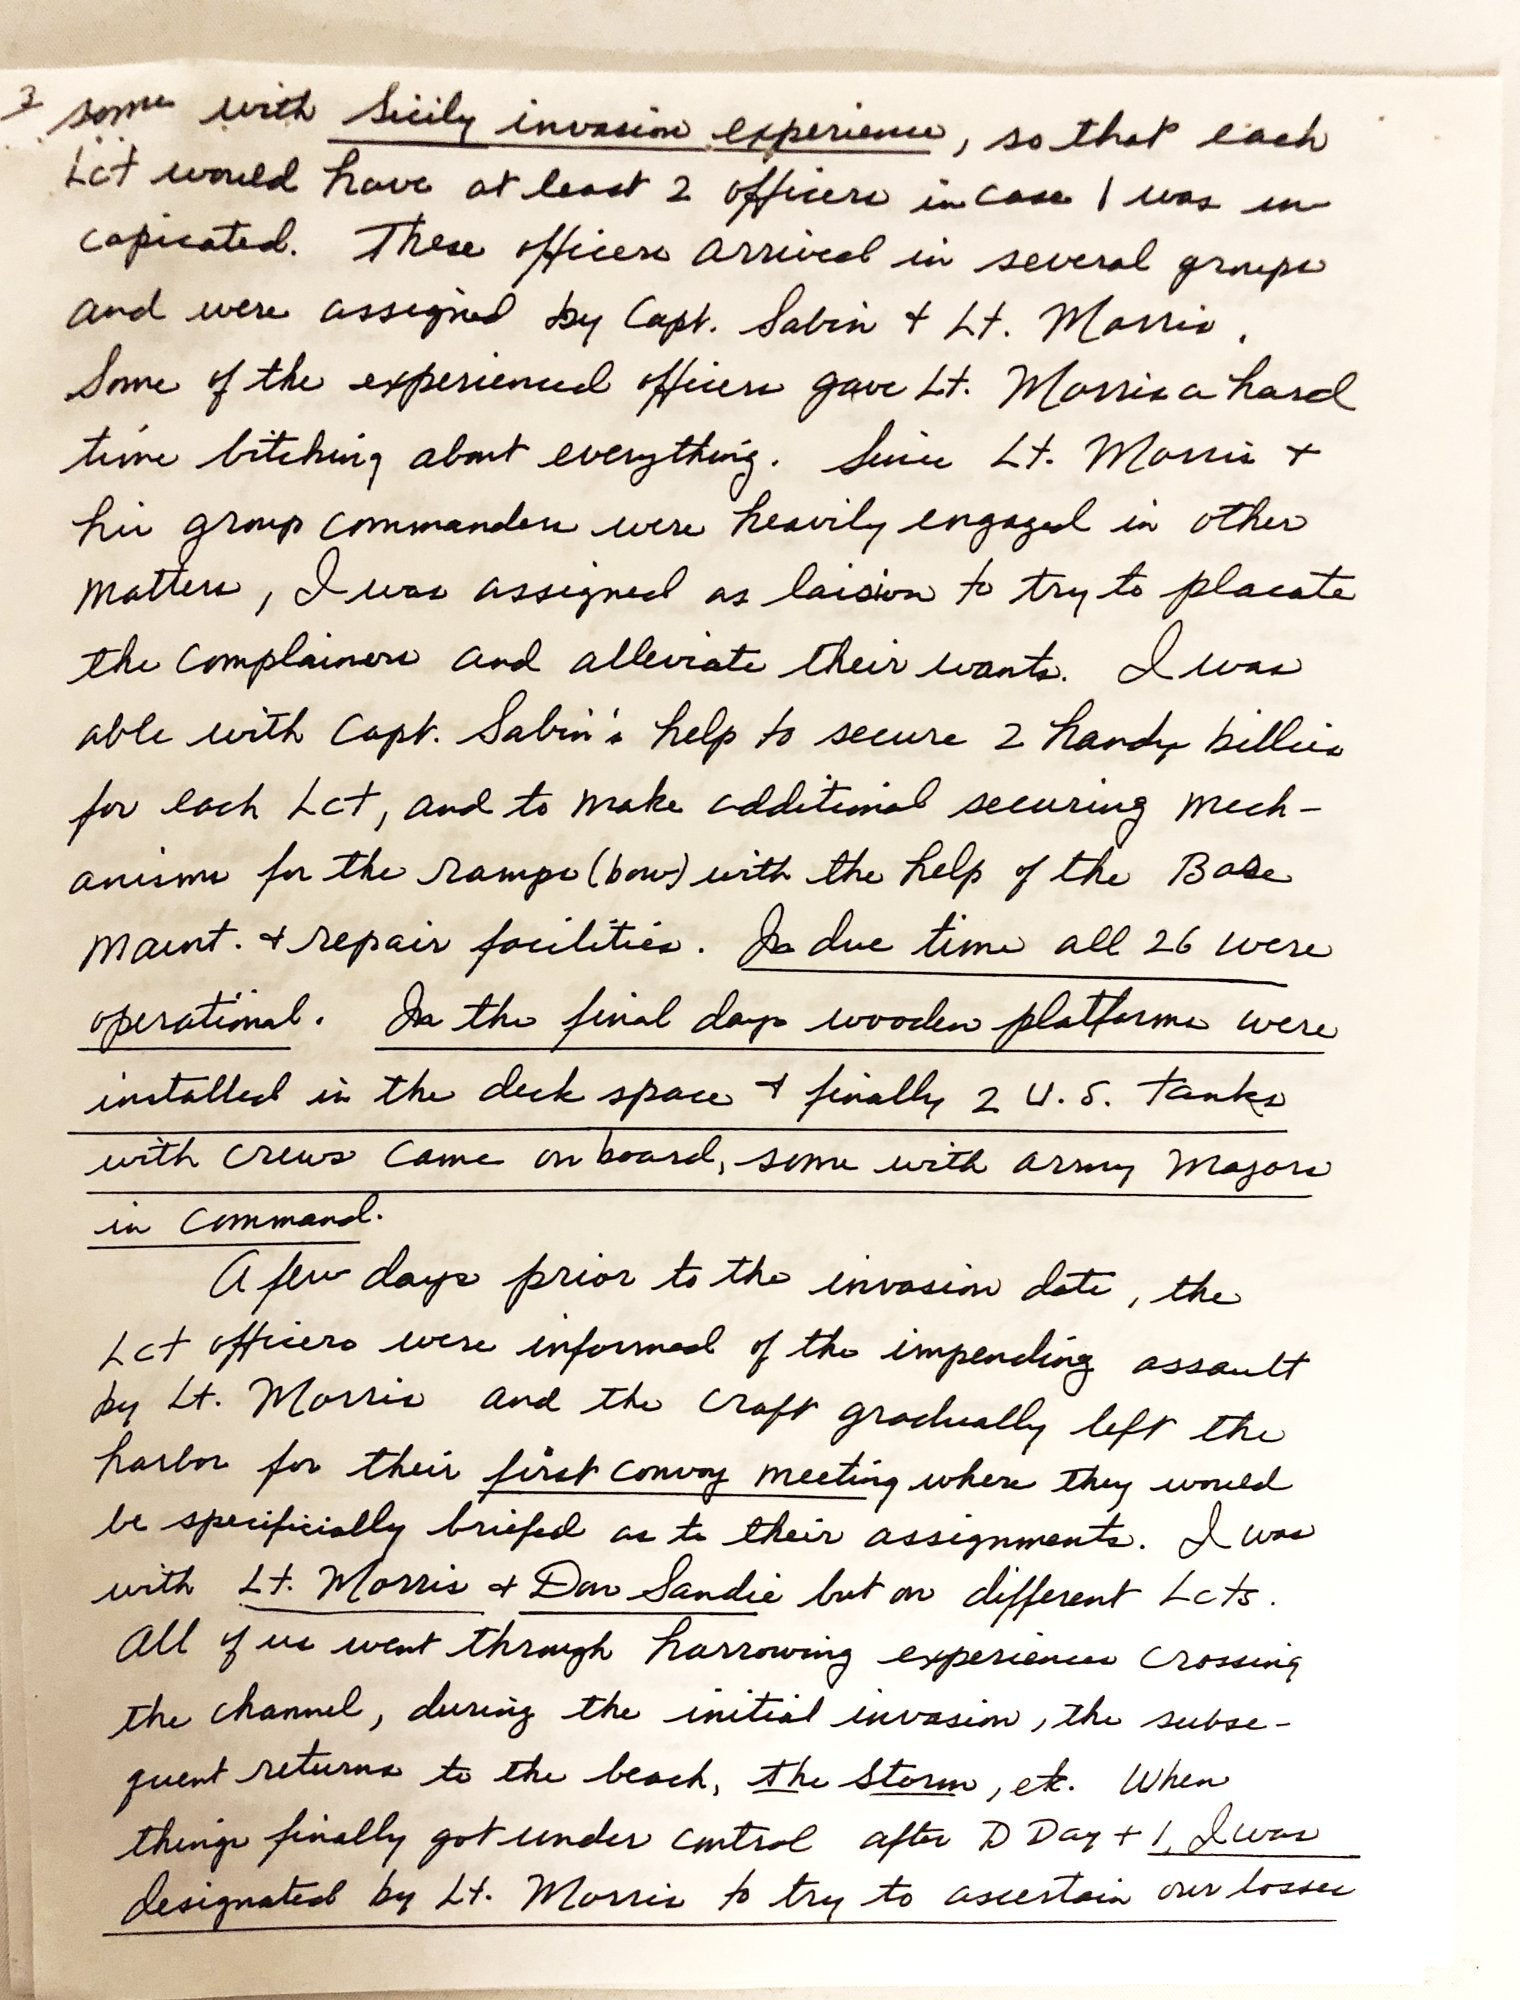 3
some with Sicily invasion experience, so that each
Lct would have at least 2 officers in case 1 was in-
capicated. These officers arrived in several groups
and were assigned by Capt. Sabin + Lt. Morris.
Some of the experienced officers gave Lt. Morris a hard
time bitching about everything. Since Lt. Morris +
his group commanders were heavily engaged in other
matters, I was assigned as laision to try to placate
the complainers and alleviate their wants. I was
able with Capt. Sabin's help to secure 2 handy billies
for each Lct, and to make additional securing mech-
anisms for the ramps (bow) with the help of the Base
Maint. + repair facilities. In due time all 26 were
operational. In the final days wooden platforms were
installed in the deck space + finally 2 U.S. tanks
with crews came on board, some with army Majors
in command.
A few days prior to the invasion date, the
Lct officers were informed of the impending assault
by Lt. Morris and the craft gradually left the
harbor for their first convoy meeting where they would
be specificially briefed as to their assignments. I was
with Lt. Morris + Don Sandie but on different Lcts.
All of us went through harrowing experiences crossing
the channel, during the initial invasion, the subse-
quent returns to the beach, the storm, etc. When
things finally got under control after D Day + 1, I was
designated by Lt. Morris to try to ascertain our losses